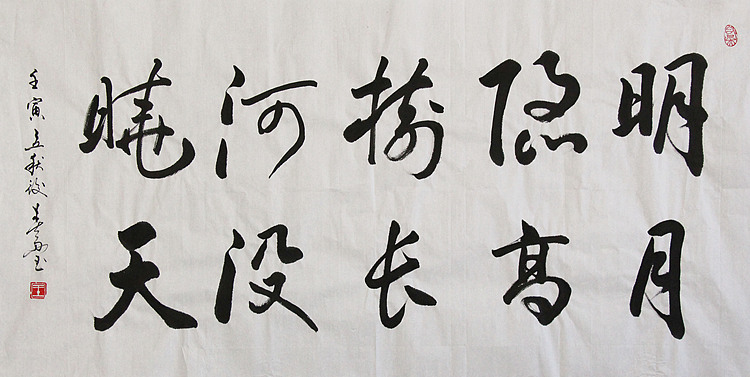 明月
隐高
樹长
河没
曉天
壬寅立秋後